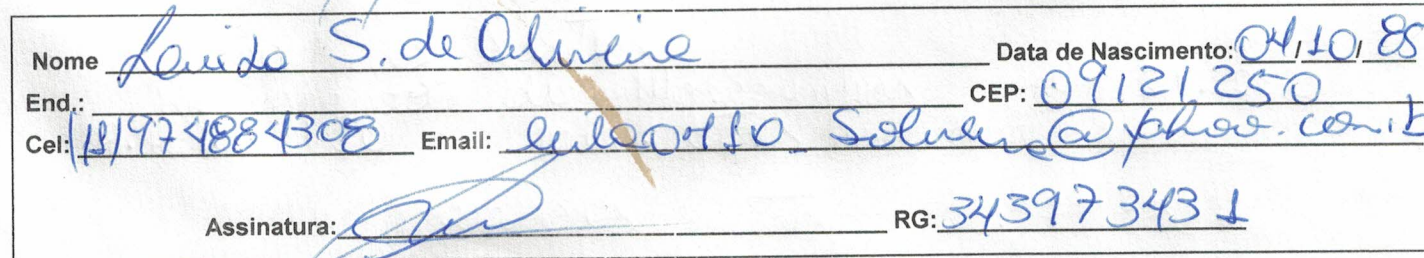 Nome S. de Oliveira Data de Nascimento: 04/10/85
End.: CEP: 09121250
Cel: (11) 974884308 Email: @yahoo.com.b
Assinatura: RG: 34397343 1